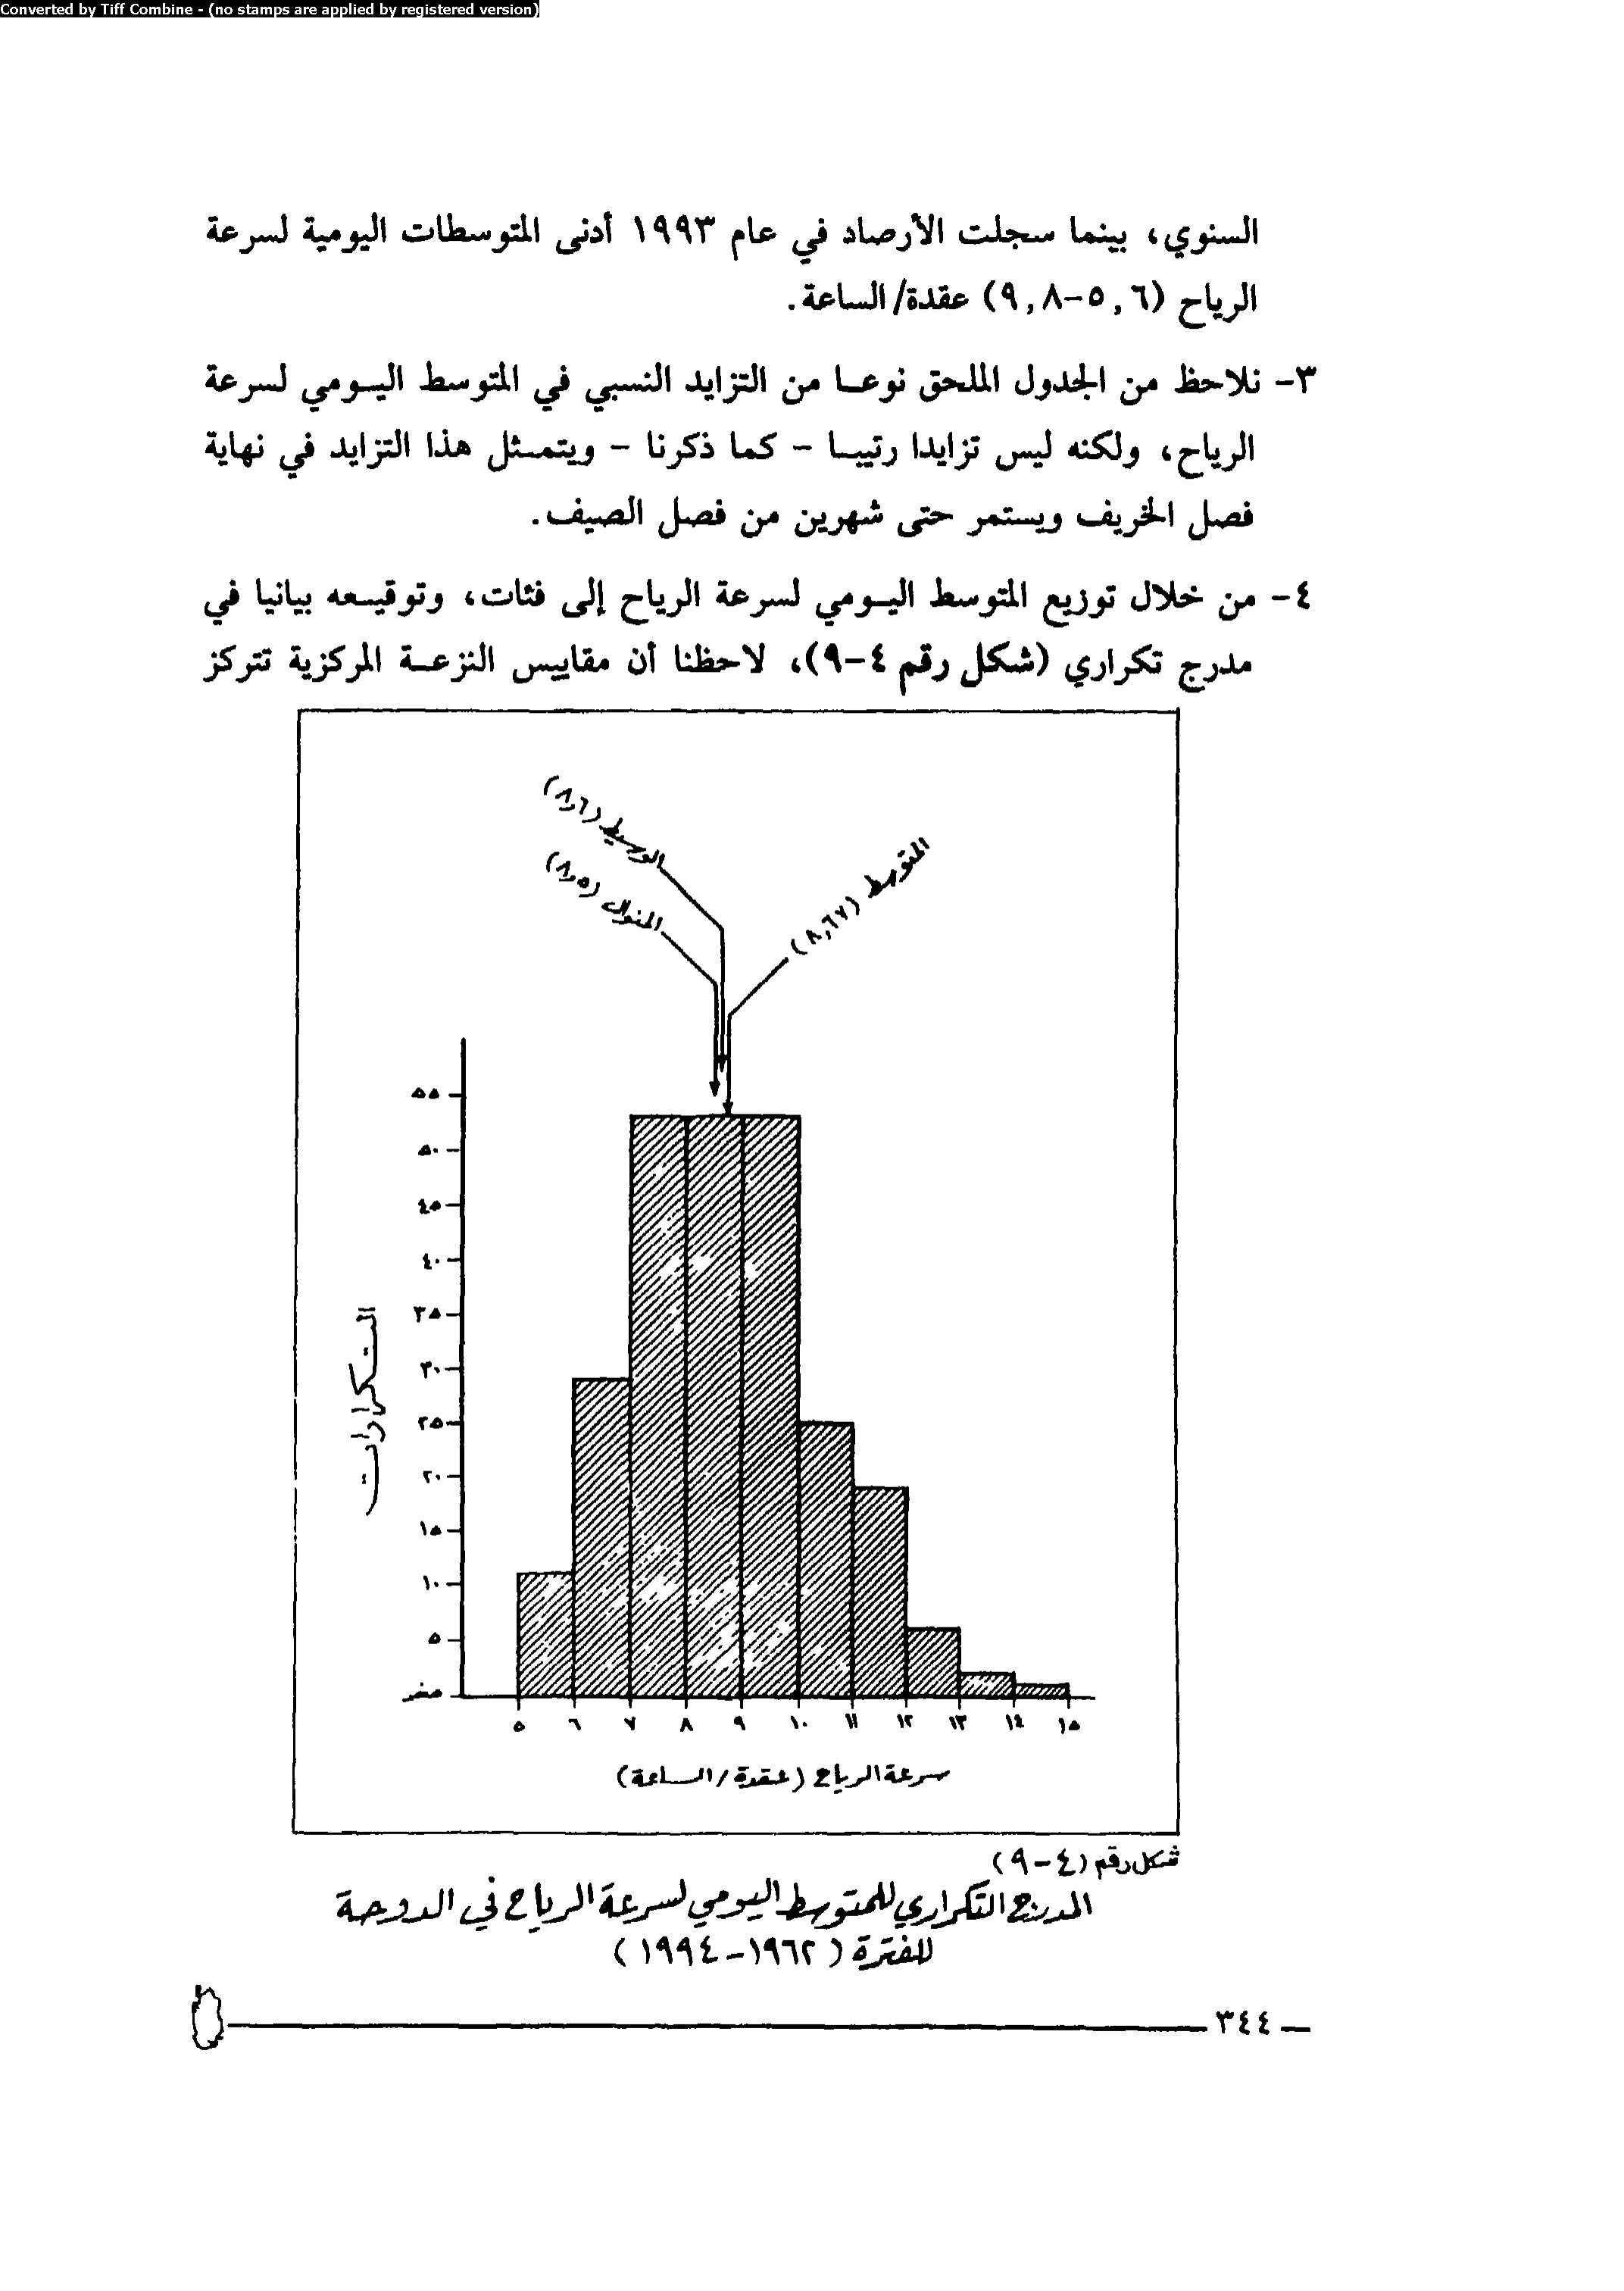 Converted by Tiff Combine - (no stamps are applied by registered version)
السنوي، بينما سجلت الأرصاد في عام ١٩٩٣ أدنى المتوسطات اليومية لسرعة
الرياح (٥,٦-٩,٨) عقدة/الساعة.
٣- نلاحظ من الجدول الملحق نوعا من التزايد النسبي في المتوسط اليومي لسرعة
الرياح، ولكنه ليس تزايدا رتيبا - كما ذكرنا - ويتمثل هذا التزايد في نهاية
فصل الخريف ويستمر حتى شهرين من فصل الصيف.
٤- من خلال توزيع المتوسط اليومي لسرعة الرياح إلى فئات، وتوقيعه بيانيا في
مدرج تكراري (شكل رقم ٤-٩)، لاحظنا أن مقاييس النزعة المركزية تتركز
الوسيط (٨,٦)
المنوال (٨,٥)
المتوسط (٨,٦٧)
٥٥
٥٠
٤٥
٤٠
٣٥
٣٠
٢٥
٢٠
١٥
١٠
٥
صفر
التكرارات
٥ ٦ ٧ ٨ ٩ ١٠ ١١ ١٢ ١٣ ١٤ ١٥
سرعة الرياح (عقدة/الساعة)
شكل رقم (٤-٩)
المدرج التكراري للمتوسط اليومي لسرعة الرياح في الدوحة
للفترة (١٩٦٢-١٩٩٤)
— ٣٤٤